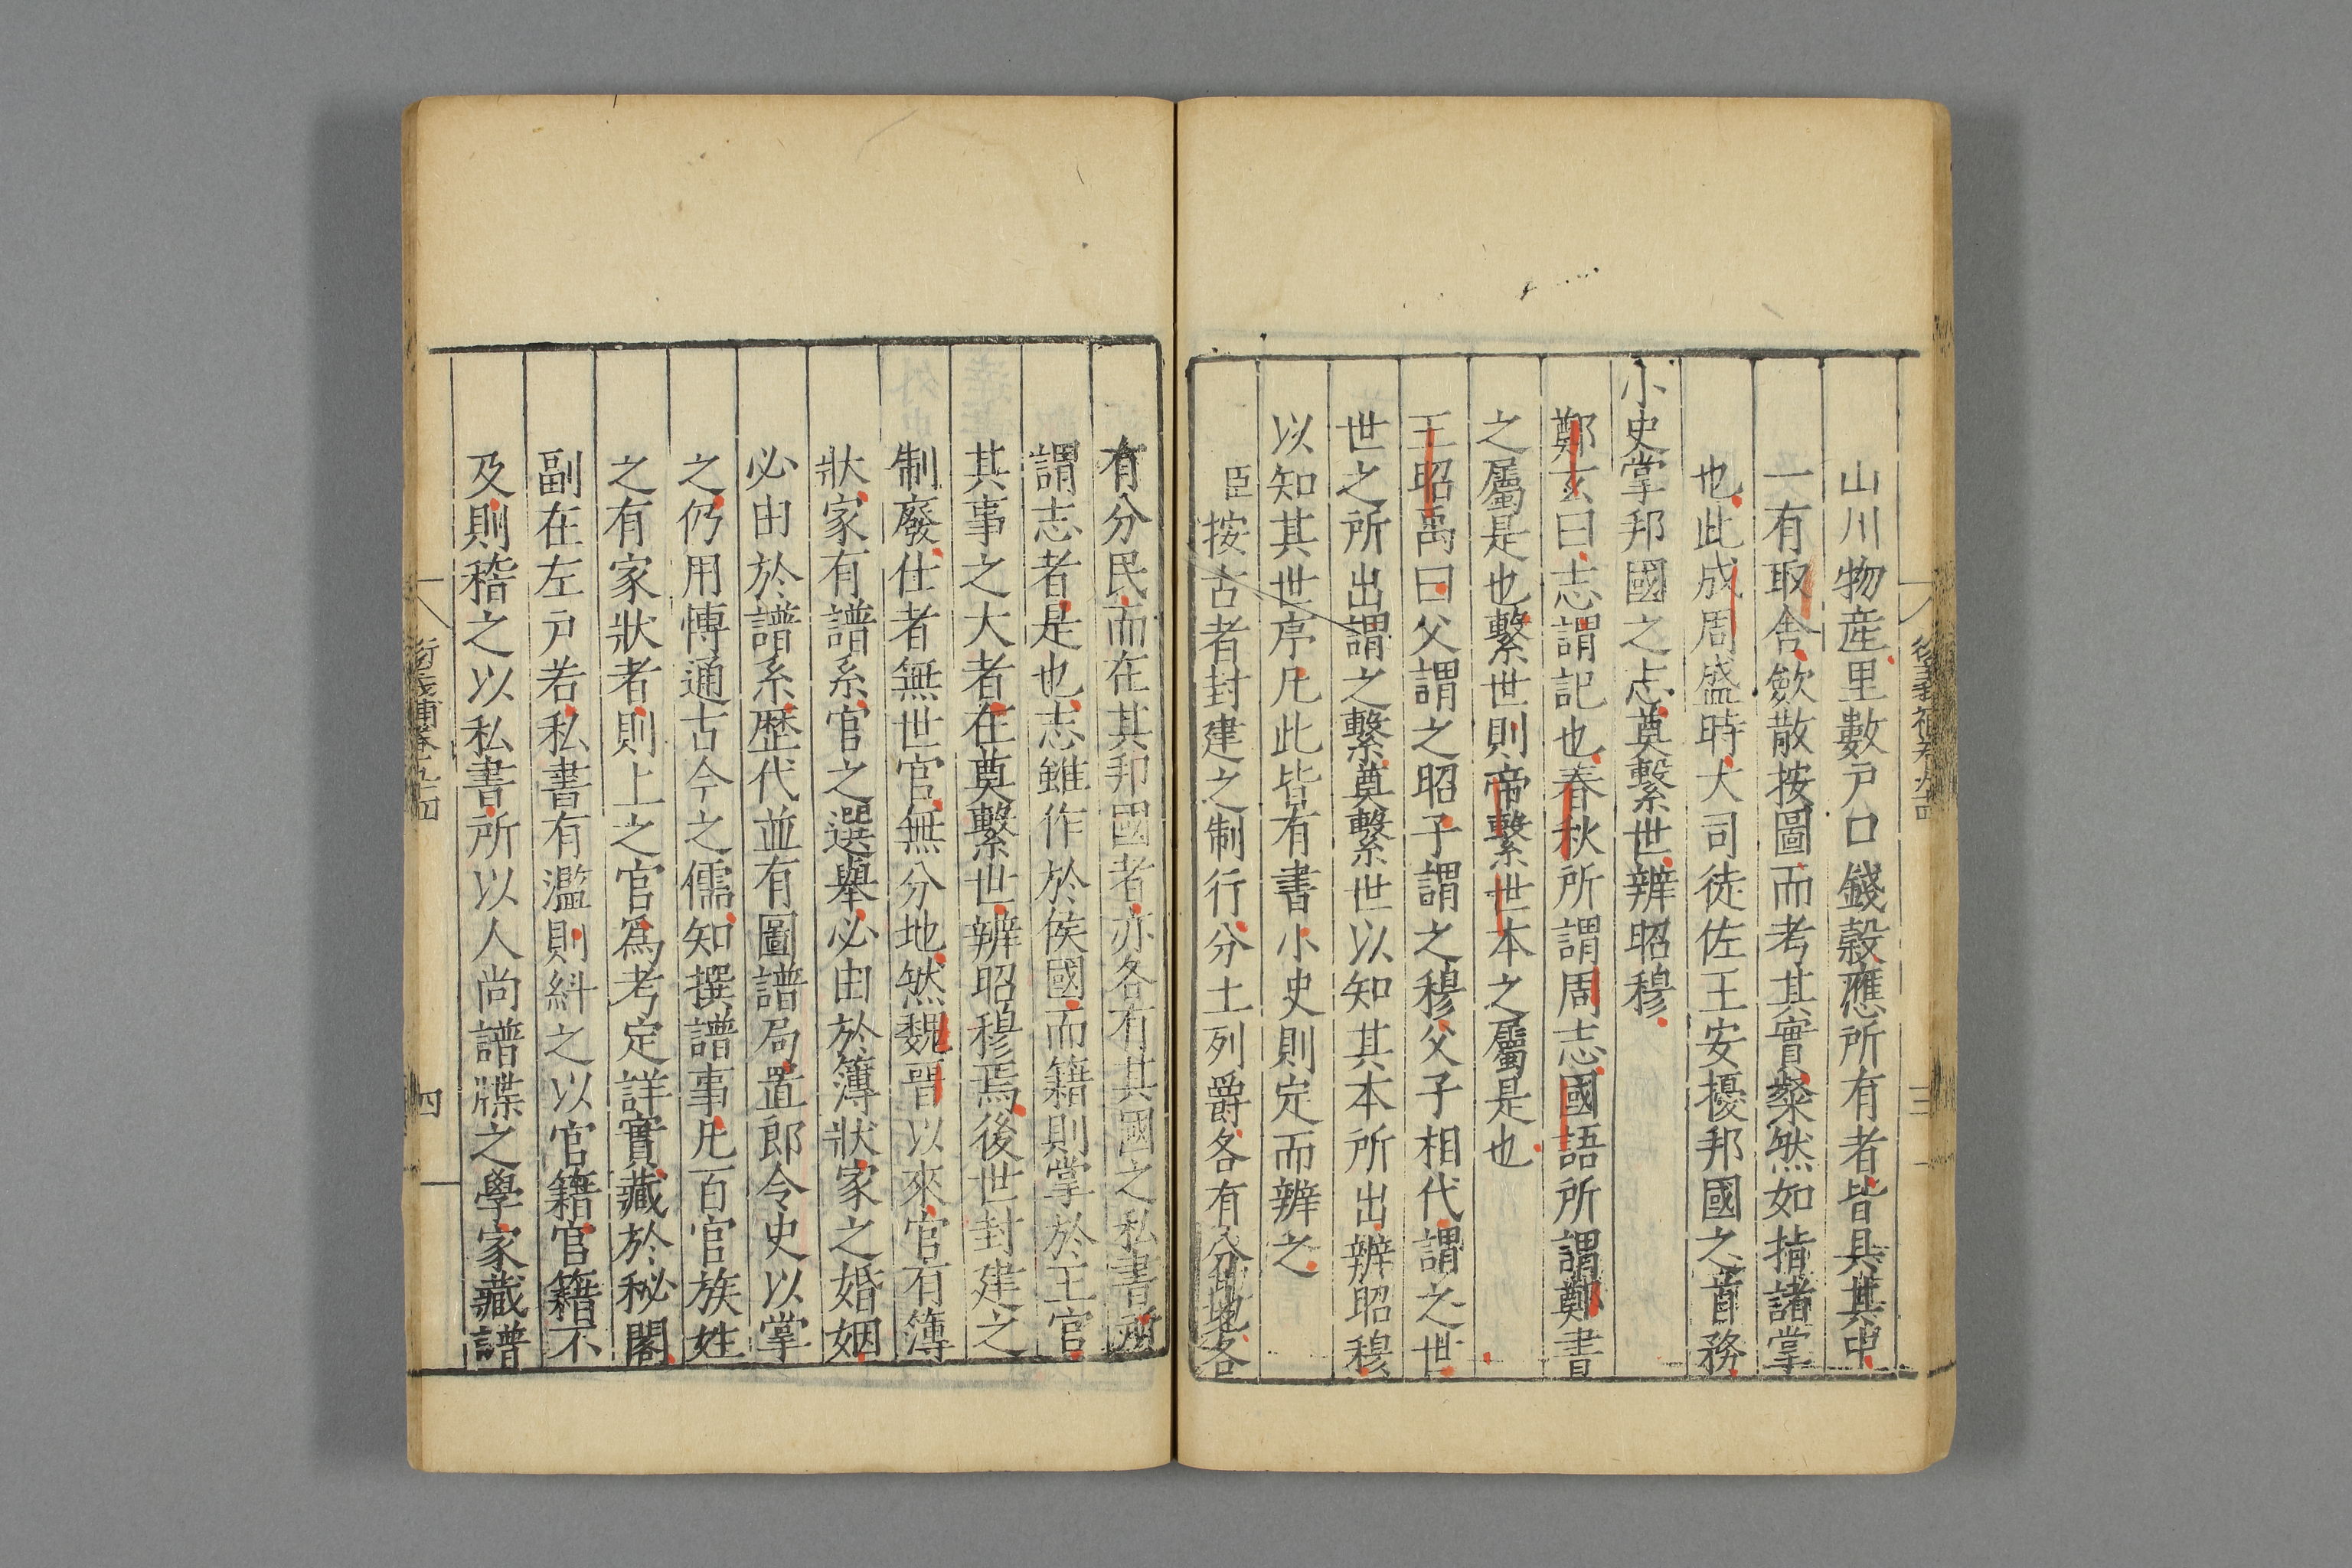 山川物産里數戸口錢穀應所有者皆具其中
一有取舍歛散按圖而考其實粲然如指諸掌
也此成周盛時大司徒佐王安擾邦國之首務
小史掌邦國之志奠繫世辨昭穆
鄭玄曰志謂記也春秋所謂周志國語所謂鄭書
之屬是也繫世則帝繫世本之屬是也
王昭禹曰父謂之昭子謂之穆父子相代謂之世
世之所出謂之繫奠繫世以知其本所出辨昭穆
以知其世序凡此皆有書小史則定而辨之
臣按古者封建之制行分土列爵各有分地各
有分民而在其邦國者亦各有其國之私書所
謂志者是也志雖作於侯國而籍則掌於王官
其事之大者在奠繫世辨昭穆焉後世封建之
制廢仕者無世官無分地然魏晋以來官有簿
狀家有譜系官之選舉必由於簿狀家之婚姻
必由於譜系歴代並有圖譜局置郎令史以掌
之仍用愽通古今之儒知撰譜事凡百官族姓
之有家狀者則上之官爲考定詳實藏於秘閣
副在左戸若私書有濫則糾之以官籍官籍不
及則稽之以私書所以人尚譜牒之學家藏譜
四